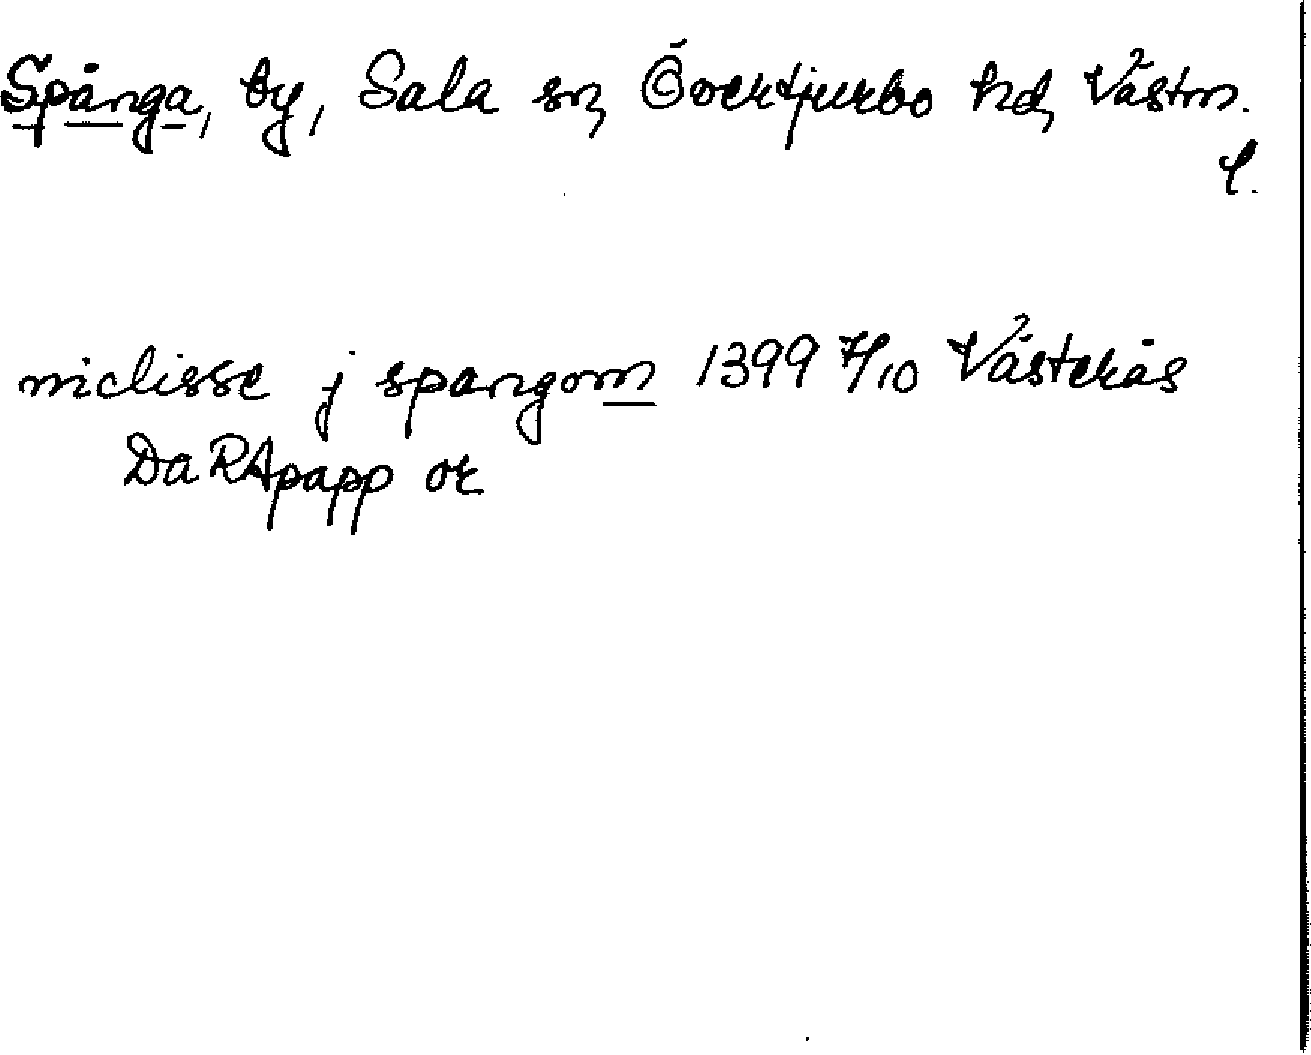 Spånga, by, Sala sn, Övertjurbo hd, Västm.
l.
niclisse j spangom 1399 7/10 Västerås
Da RApapp or